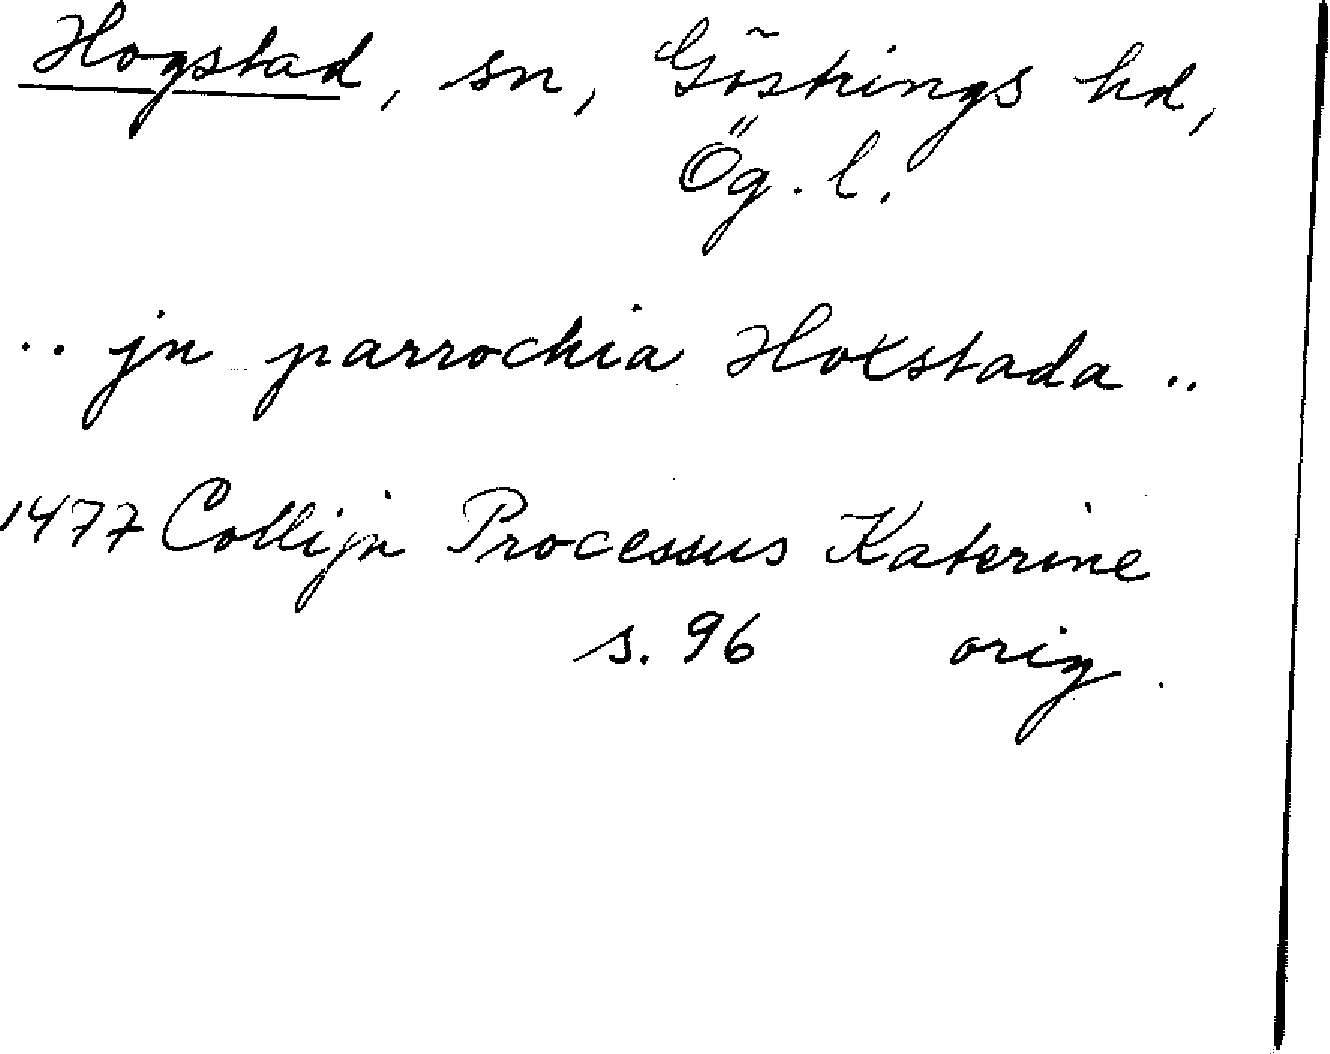 Hogstad, sn, Göstrings hd,
Ög. l.
.. jn parrochia Hokstada ..
1477 Collijn Processus Katerine
s. 96 orig.